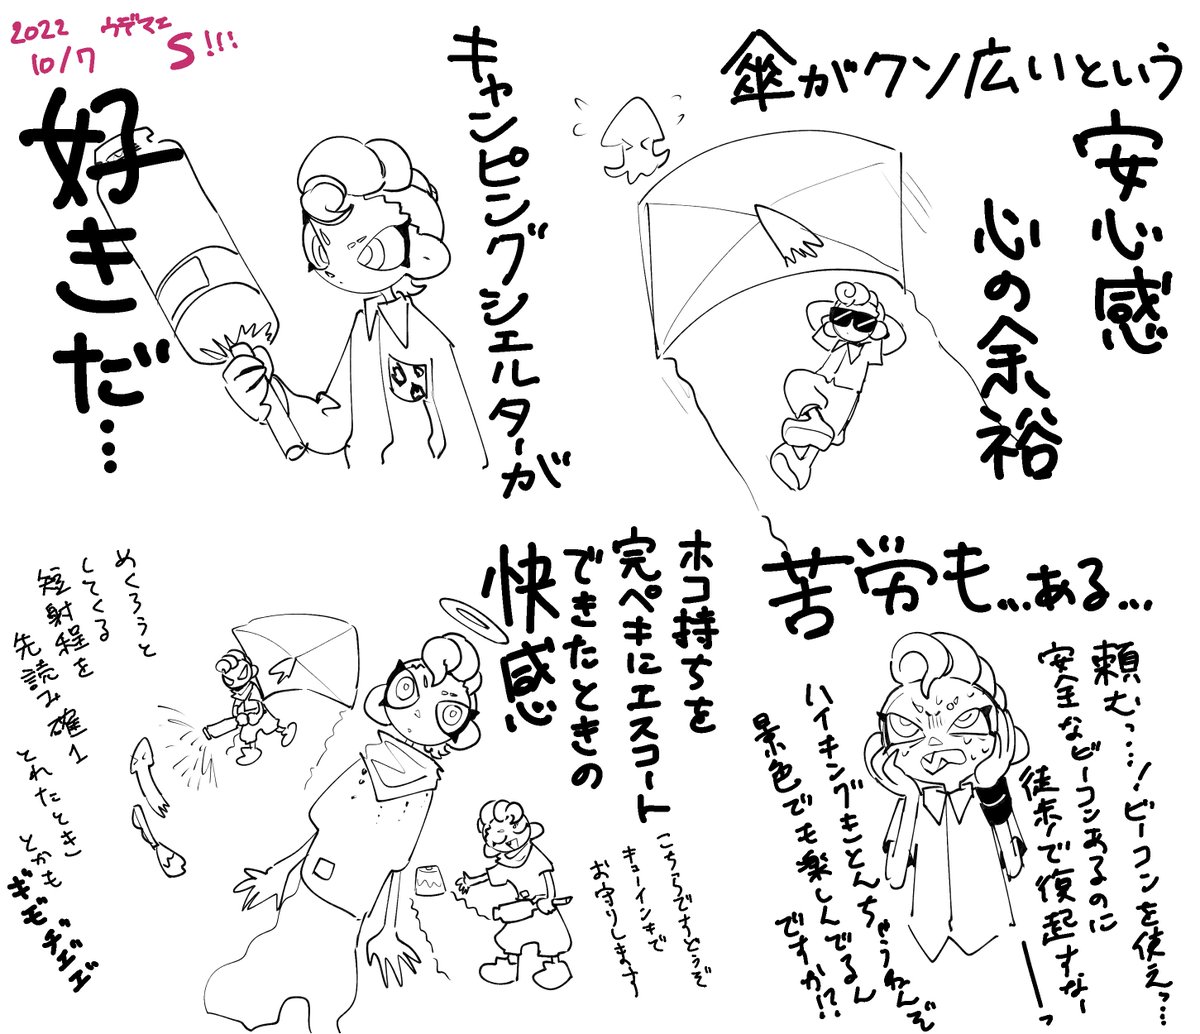 2022
10/7
ウデマエ
S!!!
キャンピングシェルターが
好きだ…
傘がクソ広いという
安心感
心の余裕
ホコ持ちを
完ペキにエスコート
できたときの
快感
こちらですどうぞ
キューインキで
お守りします
めくろうと
してくる
短射程を
先読み確1
とれたとき
とかも
ギモヂエエ゛
苦労も…ある…
頼むっ…!ビーコンを使えっ…
安全なビーコンあるのに
徒歩で復起すなーーっ
ハイキングきとんちゃうねんぞ
景色でも楽しんでるん
ですか!?